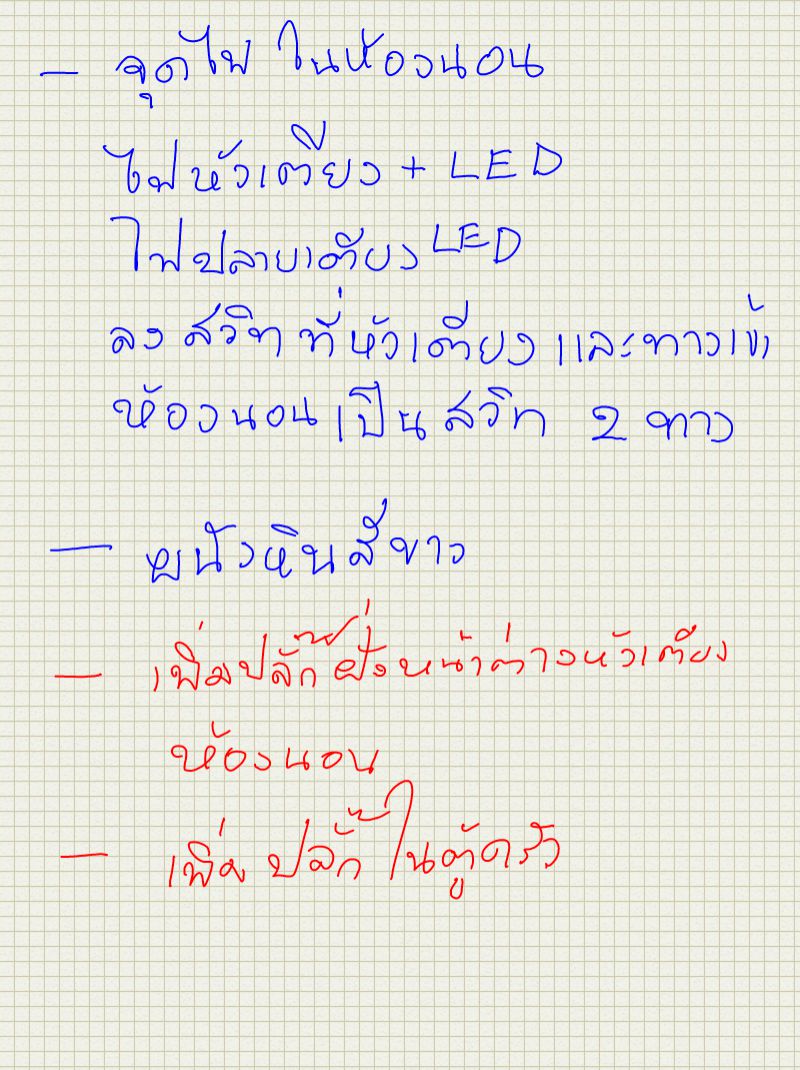 - จุดไฟ ในห้องนอน
ไฟหัวเตียง + LED
ไฟปลายเตียง LED
ลง สวิท ที่หัวเตียง และทางเข้า
ห้องนอน เป็น สวิท 2 ทาง
- ผนังหินสีขาว
- เพิ่มปลั๊กฝั่งหน้าต่างหัวเตียง
ห้องนอน
- เพิ่ม ปลั๊ก ในตู้ครัว